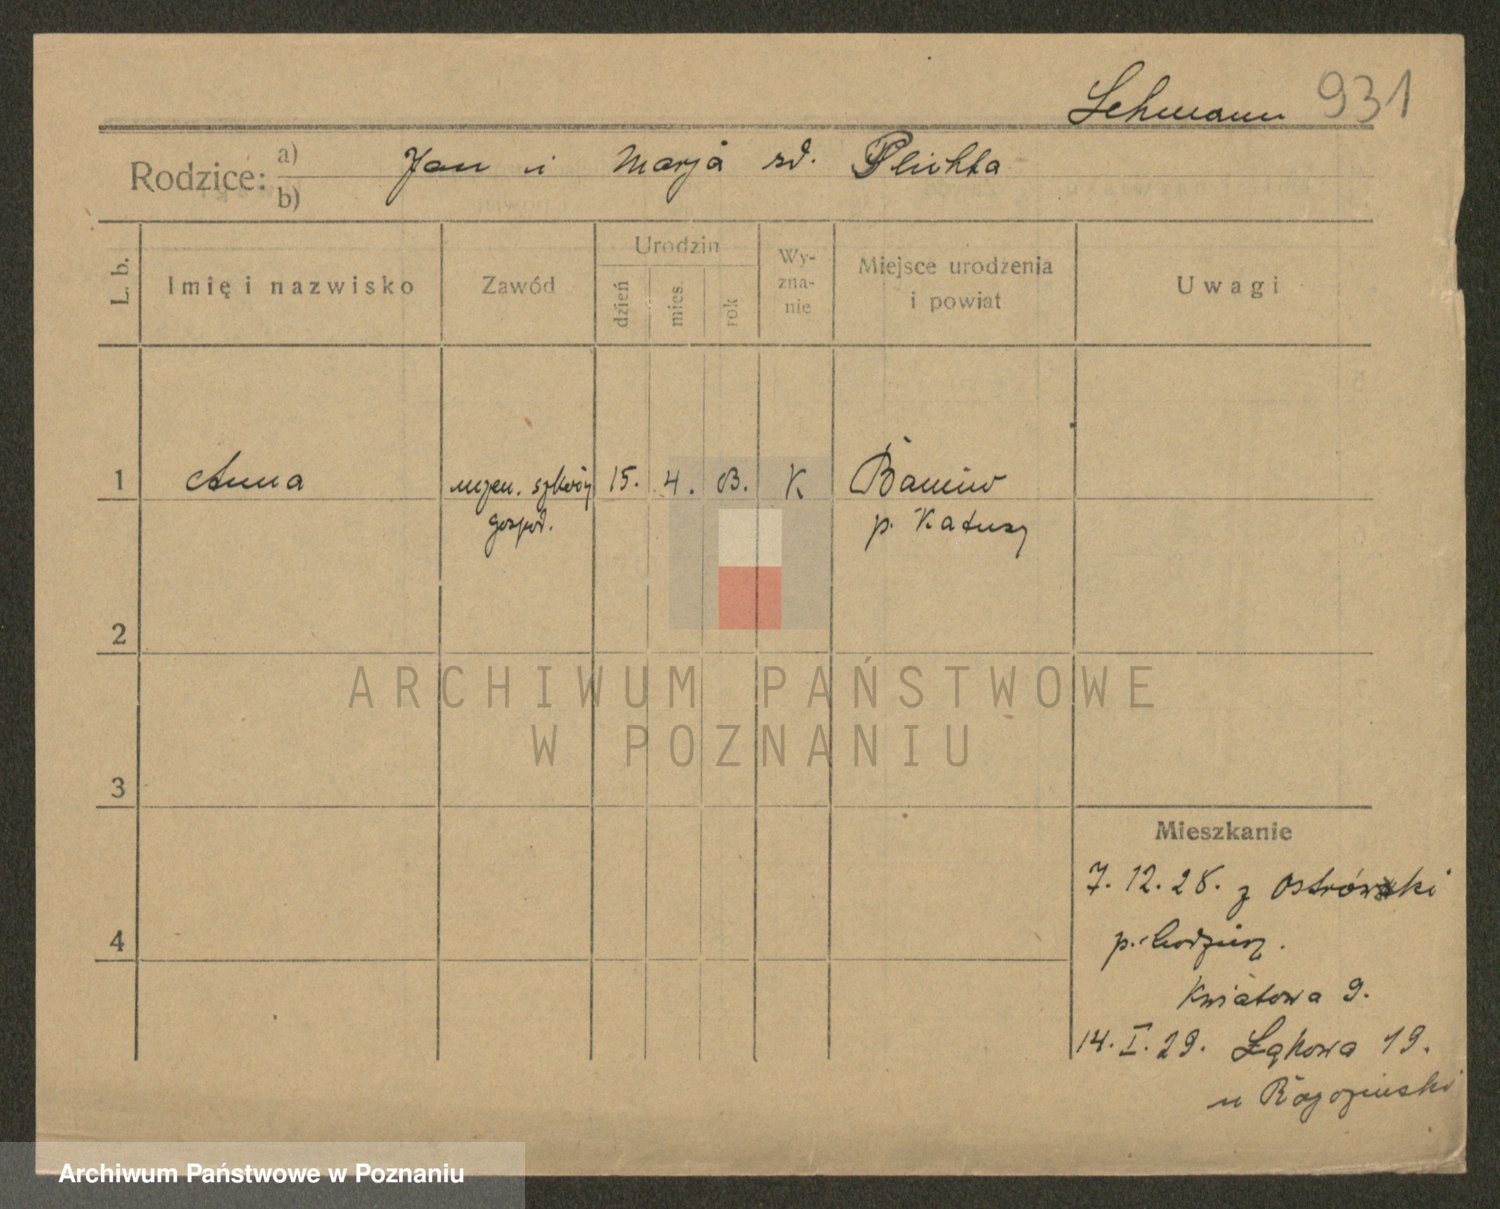 Lehmann 931
Rodzice: a) b) Jan i Marja zd. Plichta
L. b. Imię i nazwisko Zawód Urodzin dzień mies. rok Wy-zna-nie Miejsce urodzenia i powiat Uwagi
1 Anna uczen. szkoły 15. 4. 03. K Baniów
gospod. p. Katusz
2
ARCHIWUM PAŃSTWOWE
W POZNANIU
3
Mieszkanie
7. 12. 28. z Ostrówki
p. Chodzież.
4
Kwiatowa 9.
14. I. 29. Łąkowa 19.
u Rogoziński
Archiwum Państwowe w Poznaniu